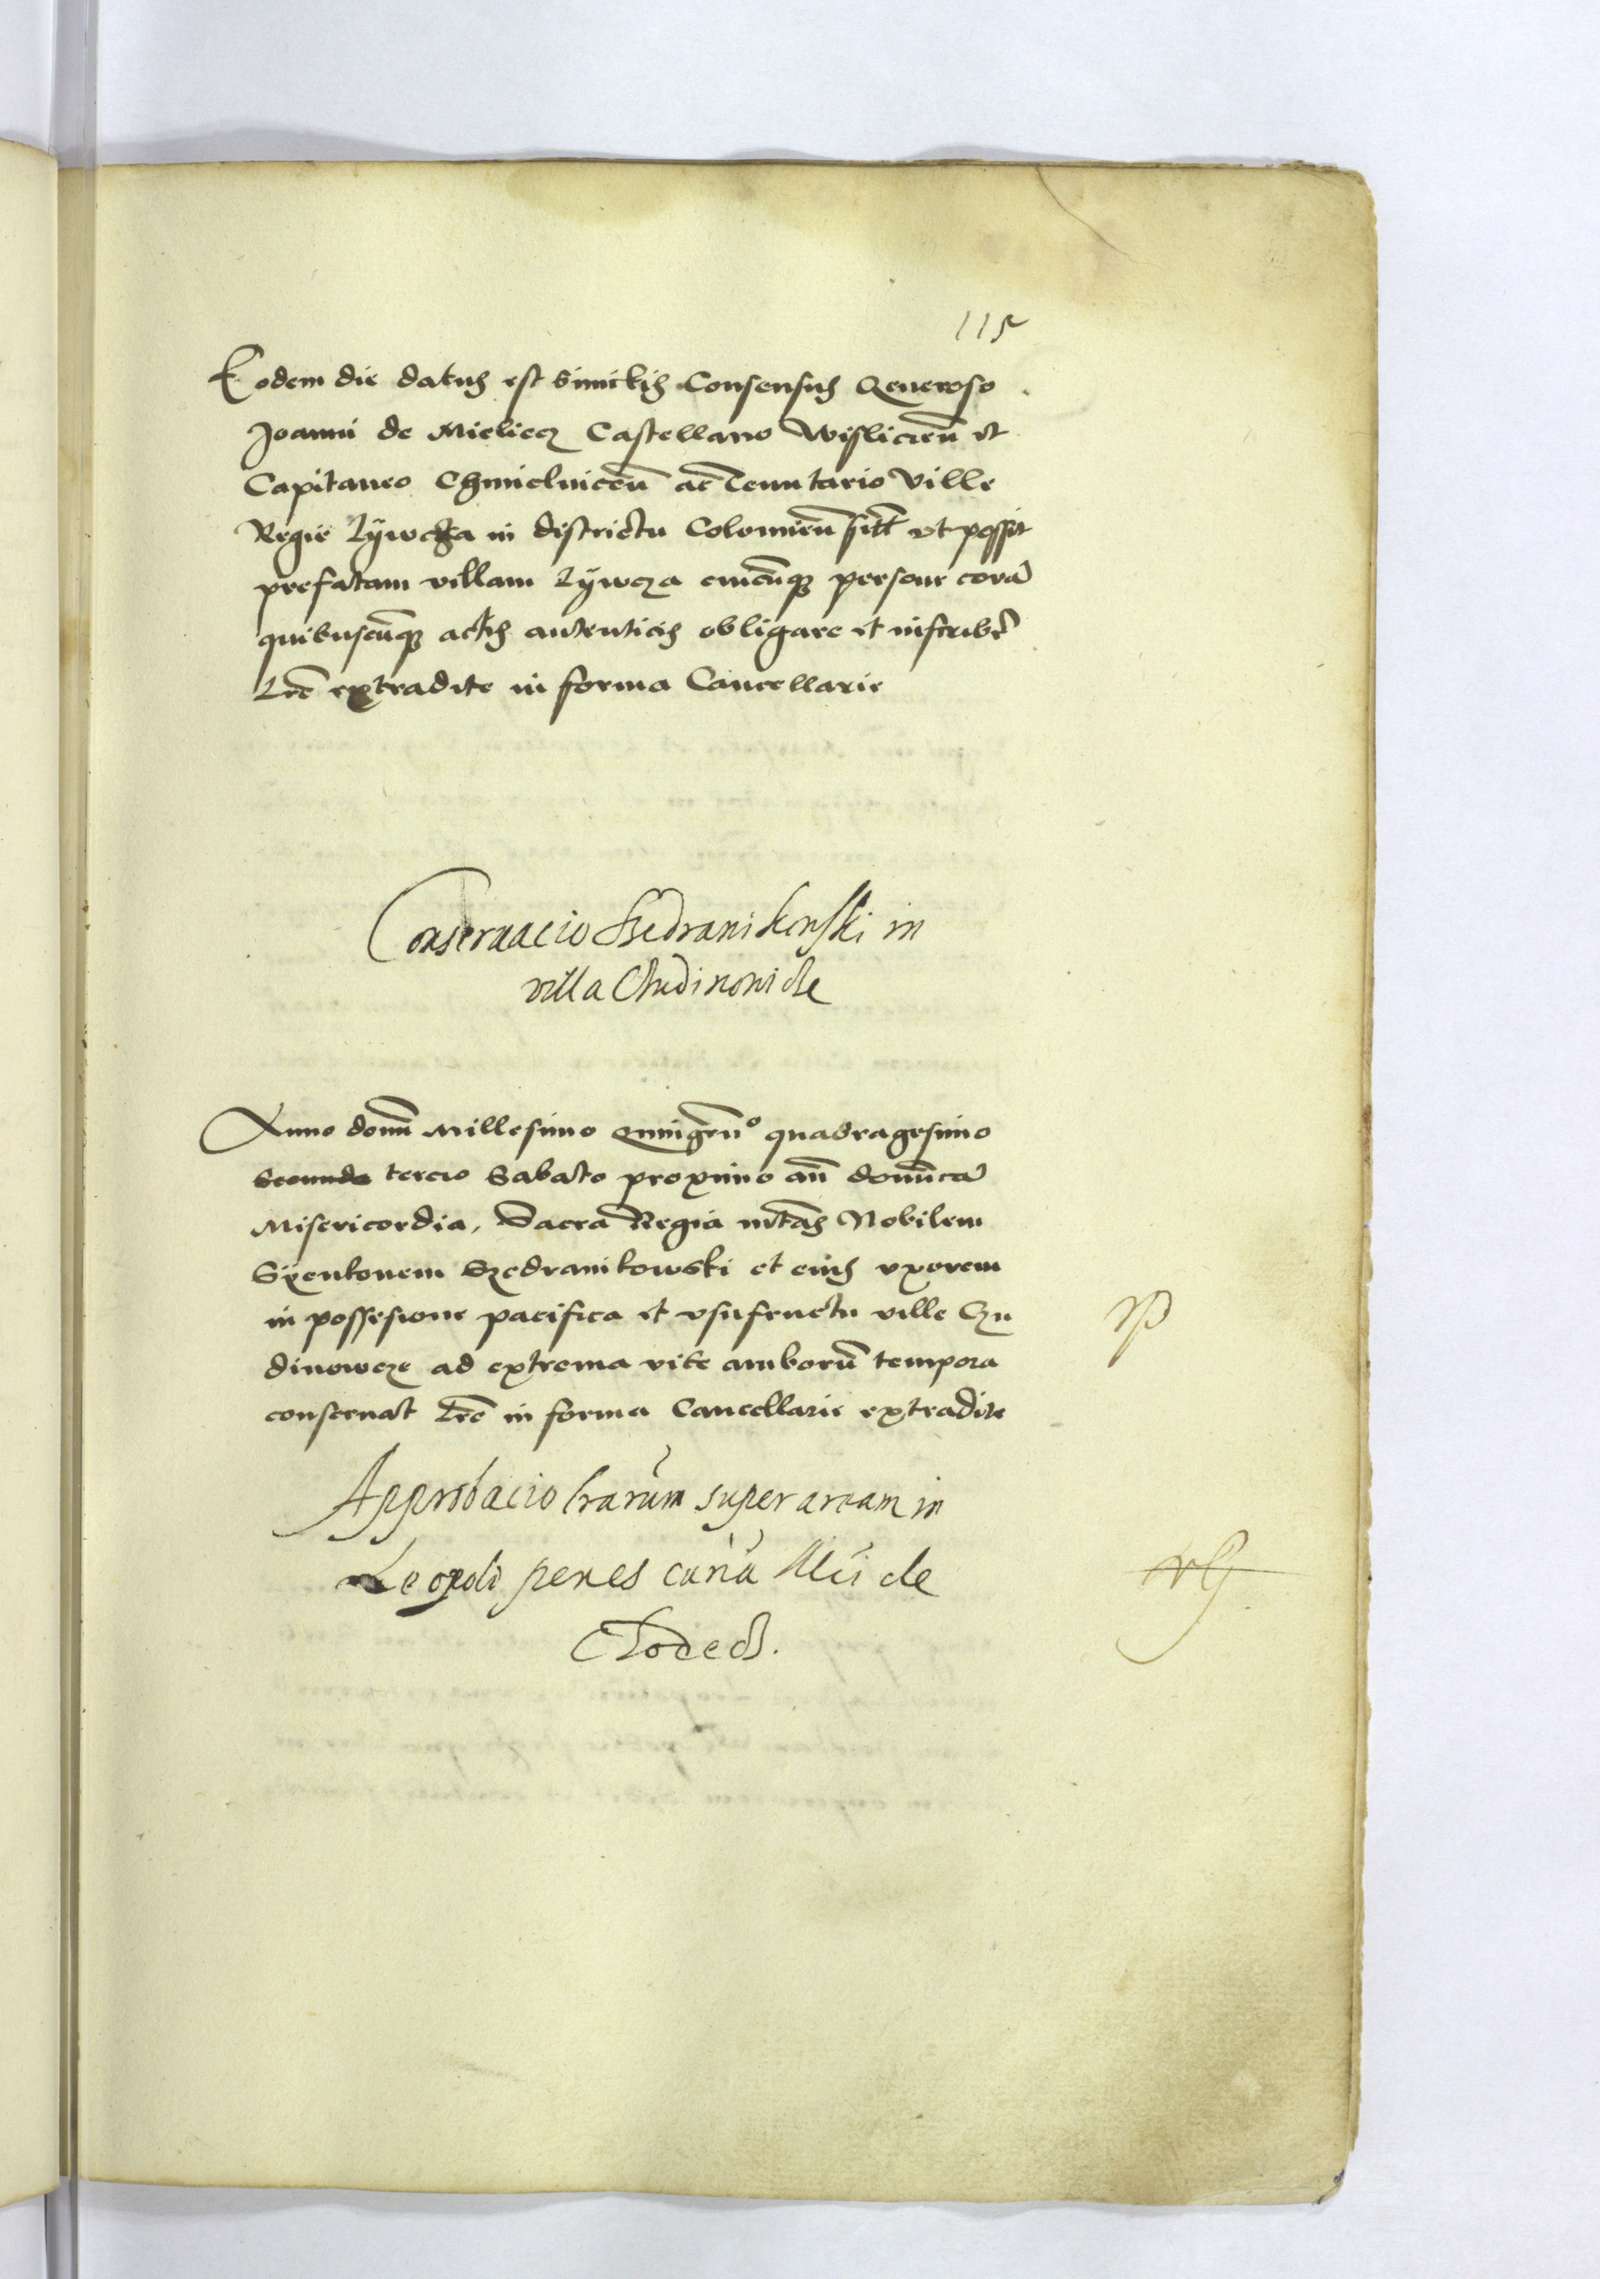 115
Eodem die datus est similis Consensus Generoso
Joanni de Mielecz Castellano Wislicieñ et
Capitaneo Chmielniceñ ac Tenutario Ville
Regie Lÿwcza in districtu Colomieñ sitt ut possit
prefatam villam Lÿwcza cuicũq3 persone corã
quibuscũq3 actis autenticis obligare et inscribe
Lre extradite in forma Cancellarie
Conservacio Szedranikowski in
villa Chudinowicze
Anno domi Millesimo Quingeño quadragesimo
Secundo tercio Sabato proximo añ dominicã
Misericordia, Sacra Regia mtas Nobilem
Szenkonem Szedranikowski et eius uxorem
in possesione pacifica et usufructu ville Czu
dinowcze ad extrema vite amborũ tempora
conservat Lre in forma Cancellarie extradite
Approbacio lrarum super aream in
Leopoli penes curiã de
Chodecz.